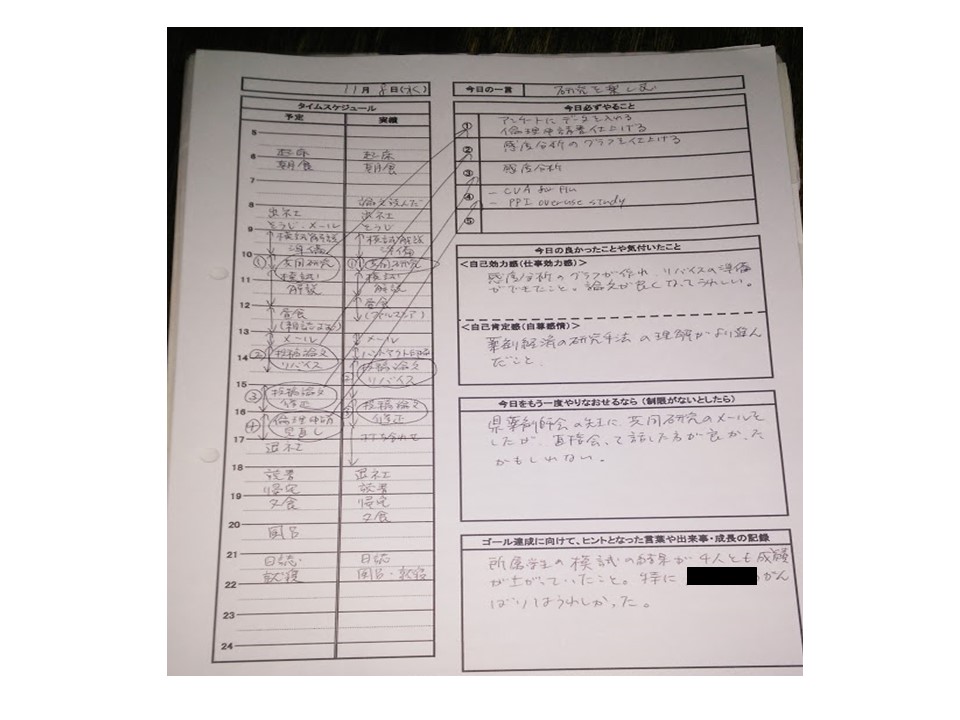 11月 8日(水)
タイムスケジュール
予定 実績
5
6 起床 起床
朝食 朝食
7
8 論文読んだ
出社 出社
9 そうじ・メール そうじ
模試解説 模試解説
準備 準備
10 ① 共同研究 ① 共同研究
11 模試 模試
解説 解説
12 昼食 昼食
13 メール メール
14 ② 投稿論文
リバイス 投稿論文
リバイス
15 ③ 投稿論文 投稿論文
修正 修正
16 ④ 倫理申請
見直し
17 打ち合わせ
退社
18 読書 退社
19 帰宅 読書
夕食 帰宅
夕食
20 風呂
21 日誌 日誌
22 就寝 風呂・就寝
23
24
今日の一言 研究を楽しむ
今日必ずやること
① アンケートにデータを入れる
倫理申請書仕上げる
② 感度分析のグラフを仕上げる
③ 感度分析
④ - CUA for Flu
- PPI overuse study
⑤
今日の良かったことや気付いたこと
<自己効力感(仕事効力感)>
感度分析のグラフが作れ、リバイスの準備
ができたこと。論文が良くなってうれしい。
<自己肯定感(自尊感情)>
薬剤経済の研究手法の理解がより進ん
だこと
今日をもう一度やりなおせるなら (制限がないとしたら)
県薬剤師会の先生に、共同研究のメールを
したが、直接会って話した方が良かった
かもしれない。
ゴール達成に向けて、ヒントとなった言葉や出来事・成長の記録
所属学生の模試の結果が4人とも成績
が上がっていたこと。特に がん
ばりはうれしかった。